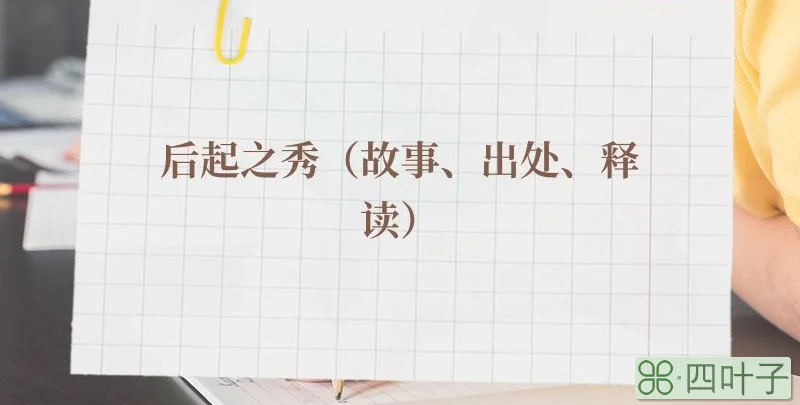 后起之秀（故事、出处、释
读）
四叶子